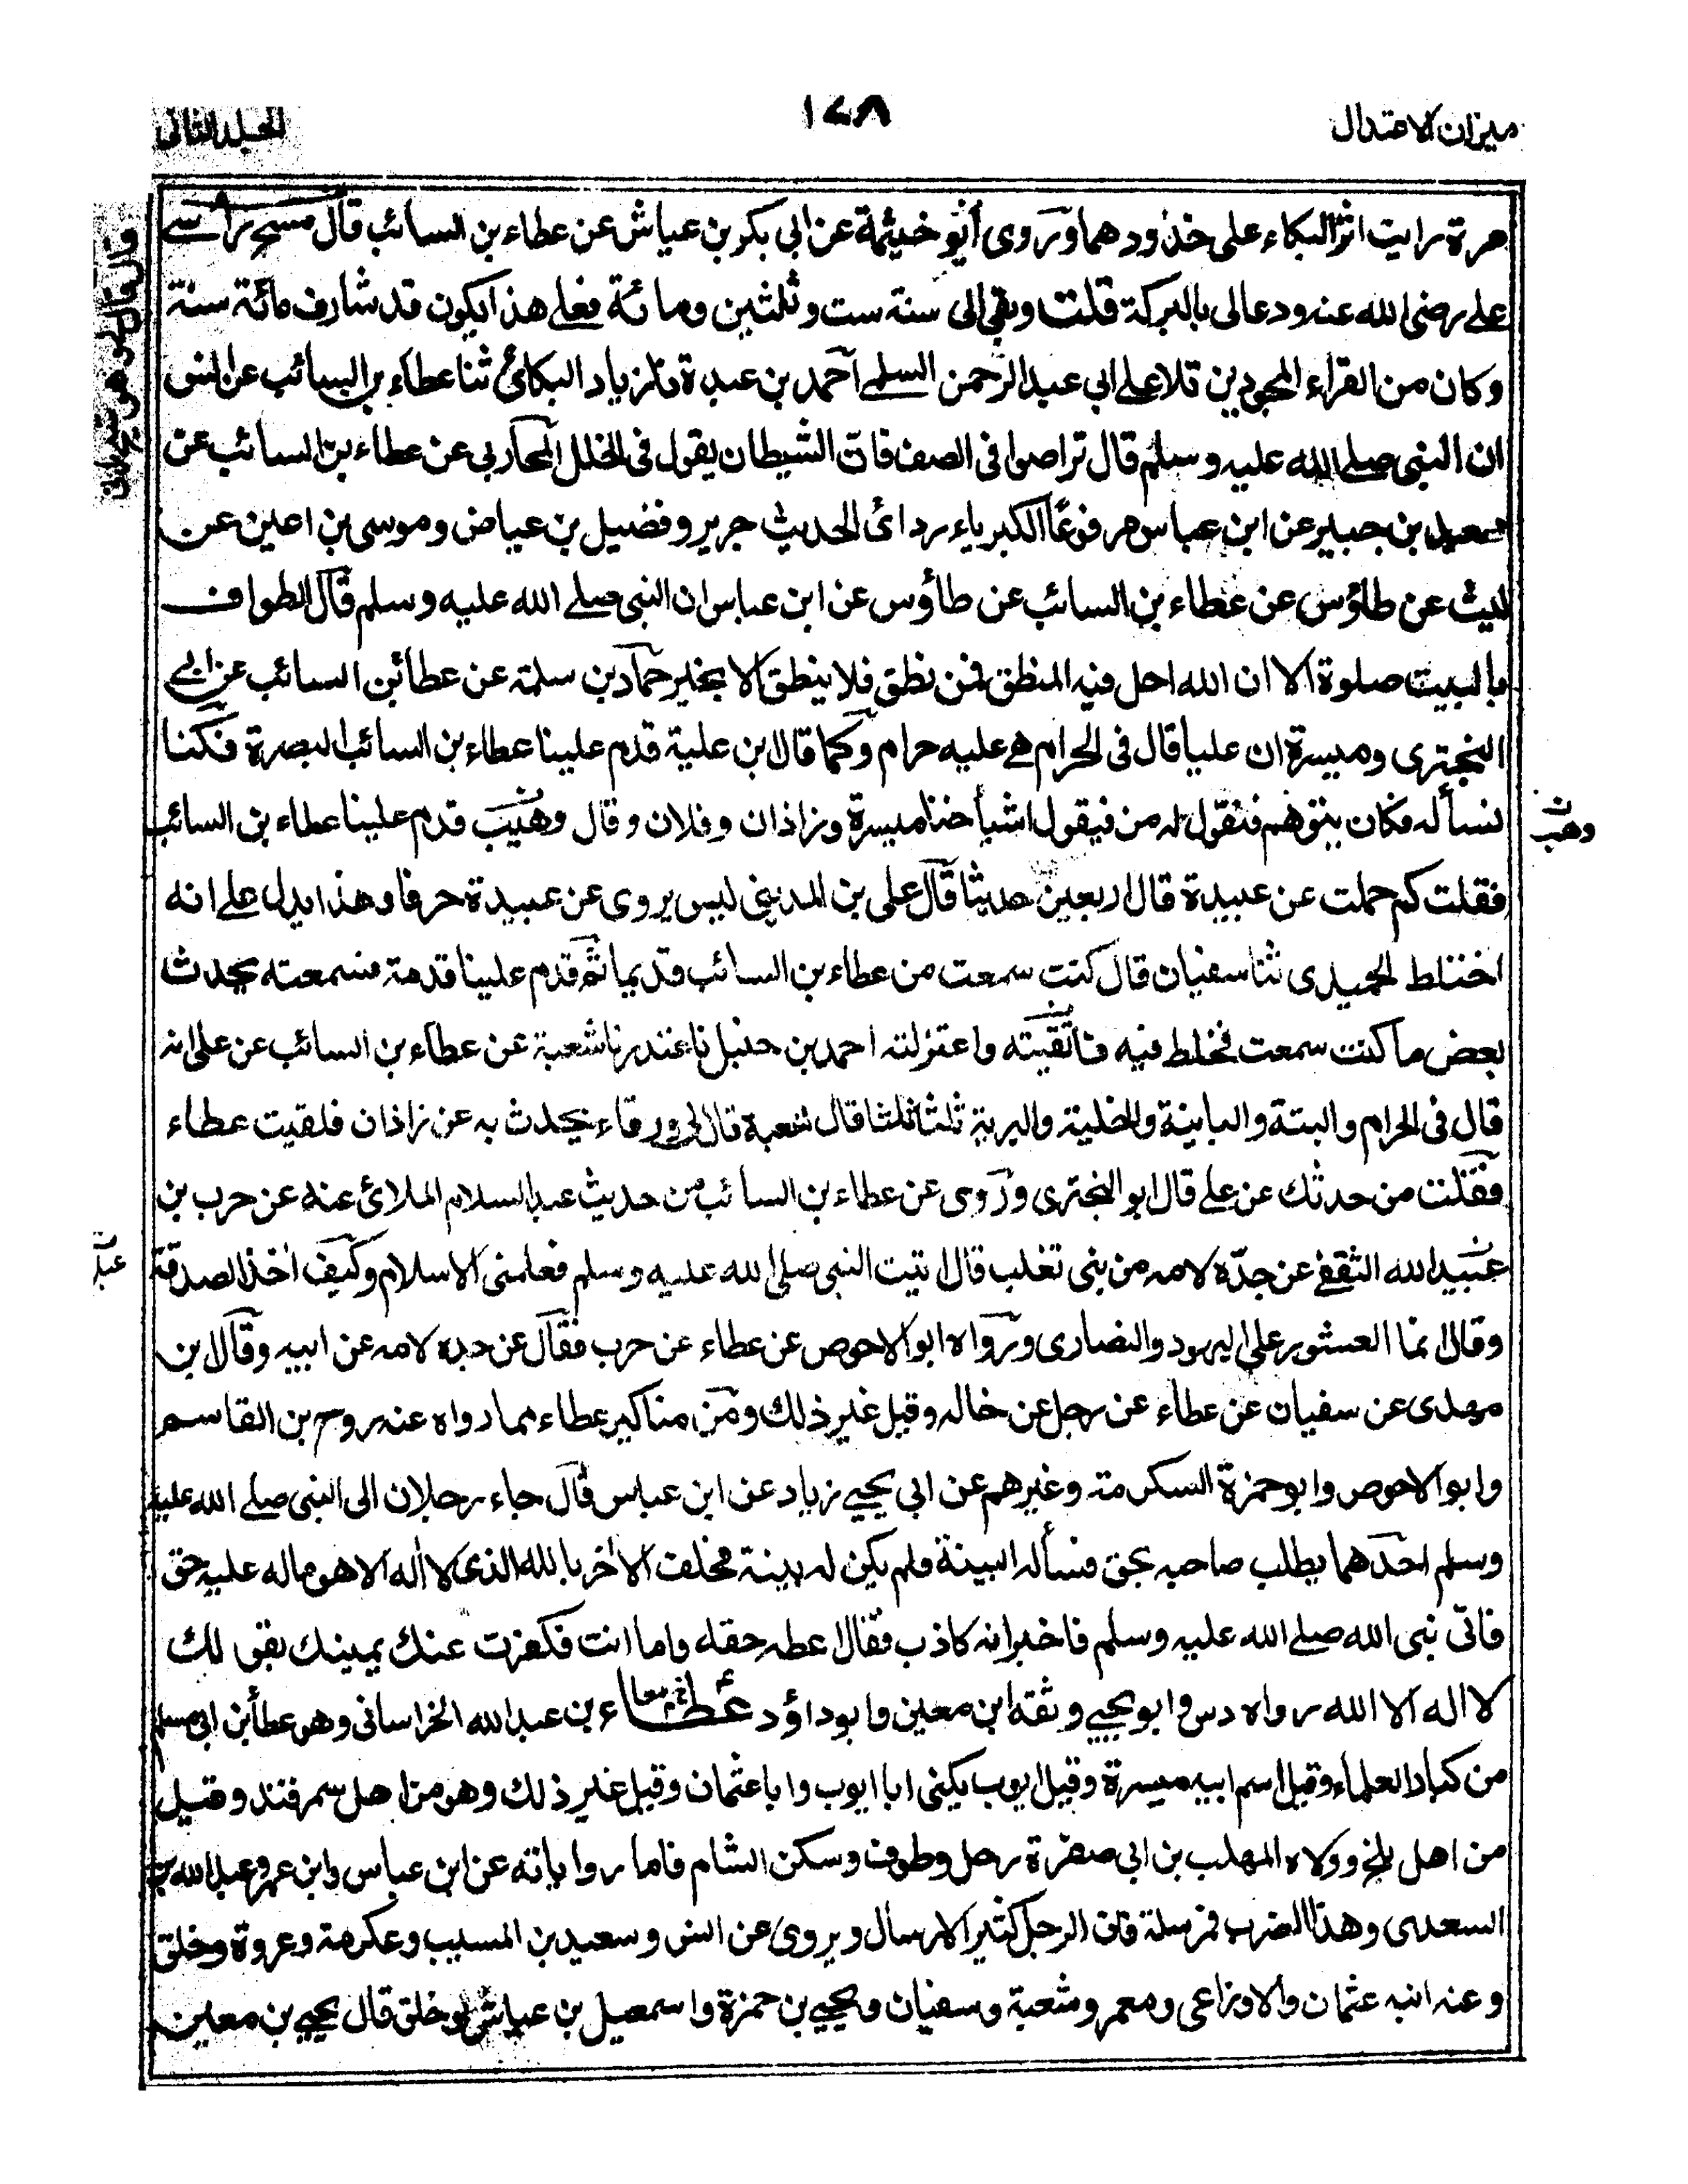 ميزان الاعتدال
١٧٨
الجلد الثانى
مرة رايت اثر البكاء على خدودهما وروى ابو خيثمة عن ابى بكر بن عياش عن عطاء بن السائب قال مسح راسے
علے رضى الله عنه ودعا لى بالبركة قلت وبقى الى سنة ست وثلثين ومائة فعلے هذا يكون قد شارف مائة سنة
وكان من القراء المجودين تلا علے ابى عبد الرحمن السلمے احمد بن عبدة نا زياد البكائى ثنا عطاء بن السائب عن انس
ان النبى صلے الله عليه وسلم قال تراصوا فى الصف فان الشيطان يقول فى الخلل المحاربى عن عطاء بن السائب عن
سعيد بن جبير عن ابن عباس مرفوعا الكبرياء ردائى الحديث جرير وفضيل بن عياض وموسى بن اعين عن
ليث عن طاؤس عن عطاء بن السائب عن طاؤس عن ابن عباس ان النبى صلے الله عليه وسلم قال الطواف
بالبيت صلوة الا ان الله احل فيه المنطق فمن نطق فلا ينطق الا بخير حماد بن سلمة عن عطائن السائب عن ابى
البختری وميسرة ان عليا قال فى الحرام هے عليه حرام وكما قال ابن علية قدم علينا عطاء بن السائب البصرة فكنا
نسأله فكان يتوهم فنقول له من فيقول اشياخنا ميسرة وزاذان وفلان وقال وهيب قدم علينا عطاء بن السائب
وهب
فقلت كم حملت عن عبيدة قال اربعين حديثا قال على بن المدينى ليس يروى عن عبيدة حرفا وهذا يدل علے انه
اختلط الحميدى ثنا سفيان قال كنت سمعت من عطاء بن السائب قديما ثم قدم علينا قدمة فسمعته يحدث
بعض ما كنت سمعت فخلط فيه فاتقيته واعتزلته احمد بن حنبل نا غندر نا شعبة عن عطاء بن السائب عن على انه
قال فى الحرام والبتة والباينة والخلية والبرية ثلثا ثلثا قال شعبة قال لى ورقاء يحدث به عن زاذان فلقيت عطاء
فقلت من حدثك عن علے قال ابو البخترى وروى عن عطاء بن السائب من حديث عبد السلام الملائى عنه عن حرب بن
عبيد الله الثقفے عن جدّه لامه من بنى تغلب قال اتيت النبى صلى الله عليه وسلم فعلمنى الاسلام وكيف اخذ الصدقة
وقال انما العشور على اليهود والنصارى ورواه ابو الاحوص عن عطاء عن حرب فقال عن جده لامه عن ابيه وقال ابن
مهدى عن سفيان عن عطاء عن رجل عن خاله وقيل غير ذلك ومن مناكير عطاء مما رواه عنه روح بن القاسم
وابو الاحوص وابو حمزة السكرمته وغيرهم عن ابى يحيے زياد عن ابن عباس قال جاء رجلان الى النبى صلے الله عليه
وسلم احدهما يطلب صاحبه بحق فسأله البينة فلم يكن له بينة فحلف الاخر بالله الذى لا اله الا هو ماله عليه حق
فاتى نبى الله صلے الله عليه وسلم فاخبر انه كاذب فقال اعطه حقه واما انت فكفرت عنك يمينك بقولك
لا اله الا الله رواه دس وابو يحيے وثقه ابن معين وابو داؤد عطاء بن عبد الله الخراسانى وهو عطأ بن ابى مسلم
من كبار العلماء وقيل اسم ابيه ميسرة وقيل ايوب يكنى ابا ايوب وابا عثمان وقيل غير ذلك وهو من اهل سمرقند وقيل
من اهل بلخ وولاه المهلب بن ابى صفرة رحل وطوف وسكن الشام فاما رواياته عن ابن عباس وابن عمر وعبد الله بن
السعدى وهذا الضرب فمرسلة فان الرجل كثير الارسال ويروى عن انس وسعيد بن المسيب وعكرمة وعروة وخلق
وعنه ابنه عثمان والاوزاعى ومعمر وشعبة وسفيان ويحيے بن حمزة واسمعيل بن عياش وخلق قال يحيے بن معين